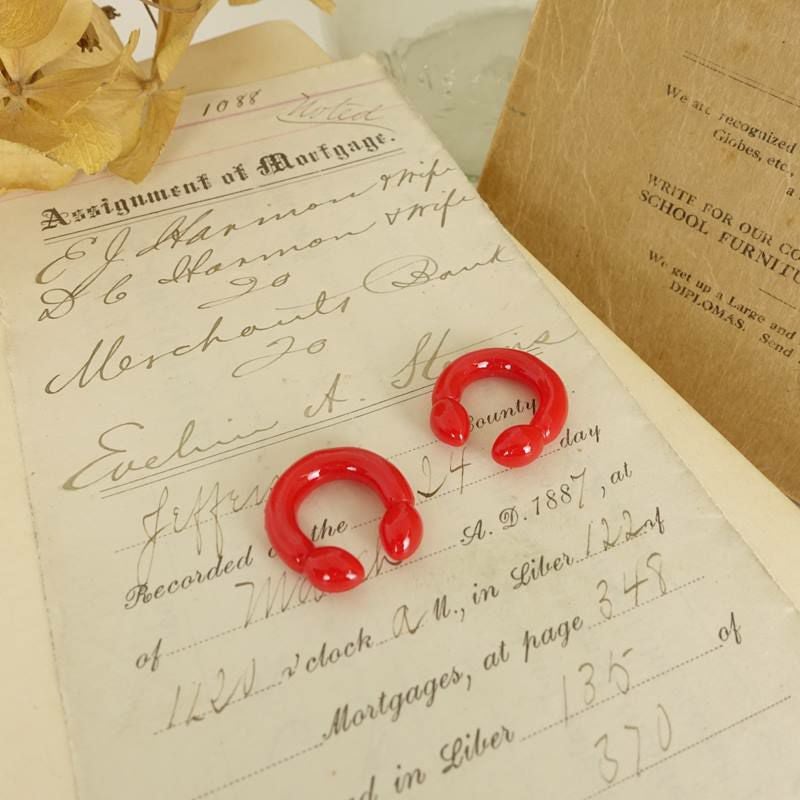 1088 Noted
Assignment of Mortgage.
E J Harmon & Wife
D C Harmon & Wife
to
Merchants Bank
to
Evelin A.
County
Recorded the 24 day
of March A.D. 1887, at
1120 o'clock A M., in Liber 122 of
Mortgages, at page 348
of
in Liber 135
370
We are recognized
Globes, etc.,
a
WRITE FOR OUR
SCHOOL
We get up a Large and
DIPLOMAS. Send